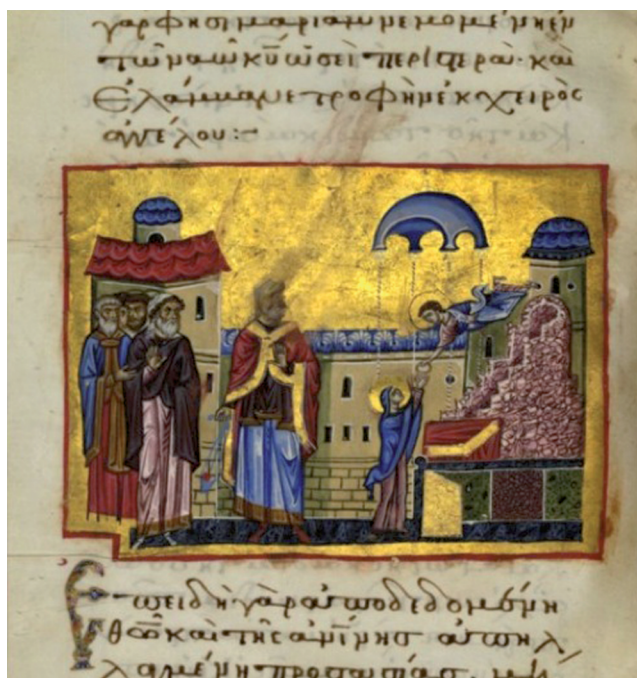 γάρ φησι μαριὰμ νεμομένη ἐν
τῶ ναῶ κυ ὡσεὶ περιστερά· καὶ
ἐλάμβανε τροφὴν ἐκ χειρὸς
ἀγγέλου:—
Ἐπειδὴ γὰρ ἀποδεδομένη
θῶ καὶ τῆς ἀνίνης ἀπηλ
προστασίας.